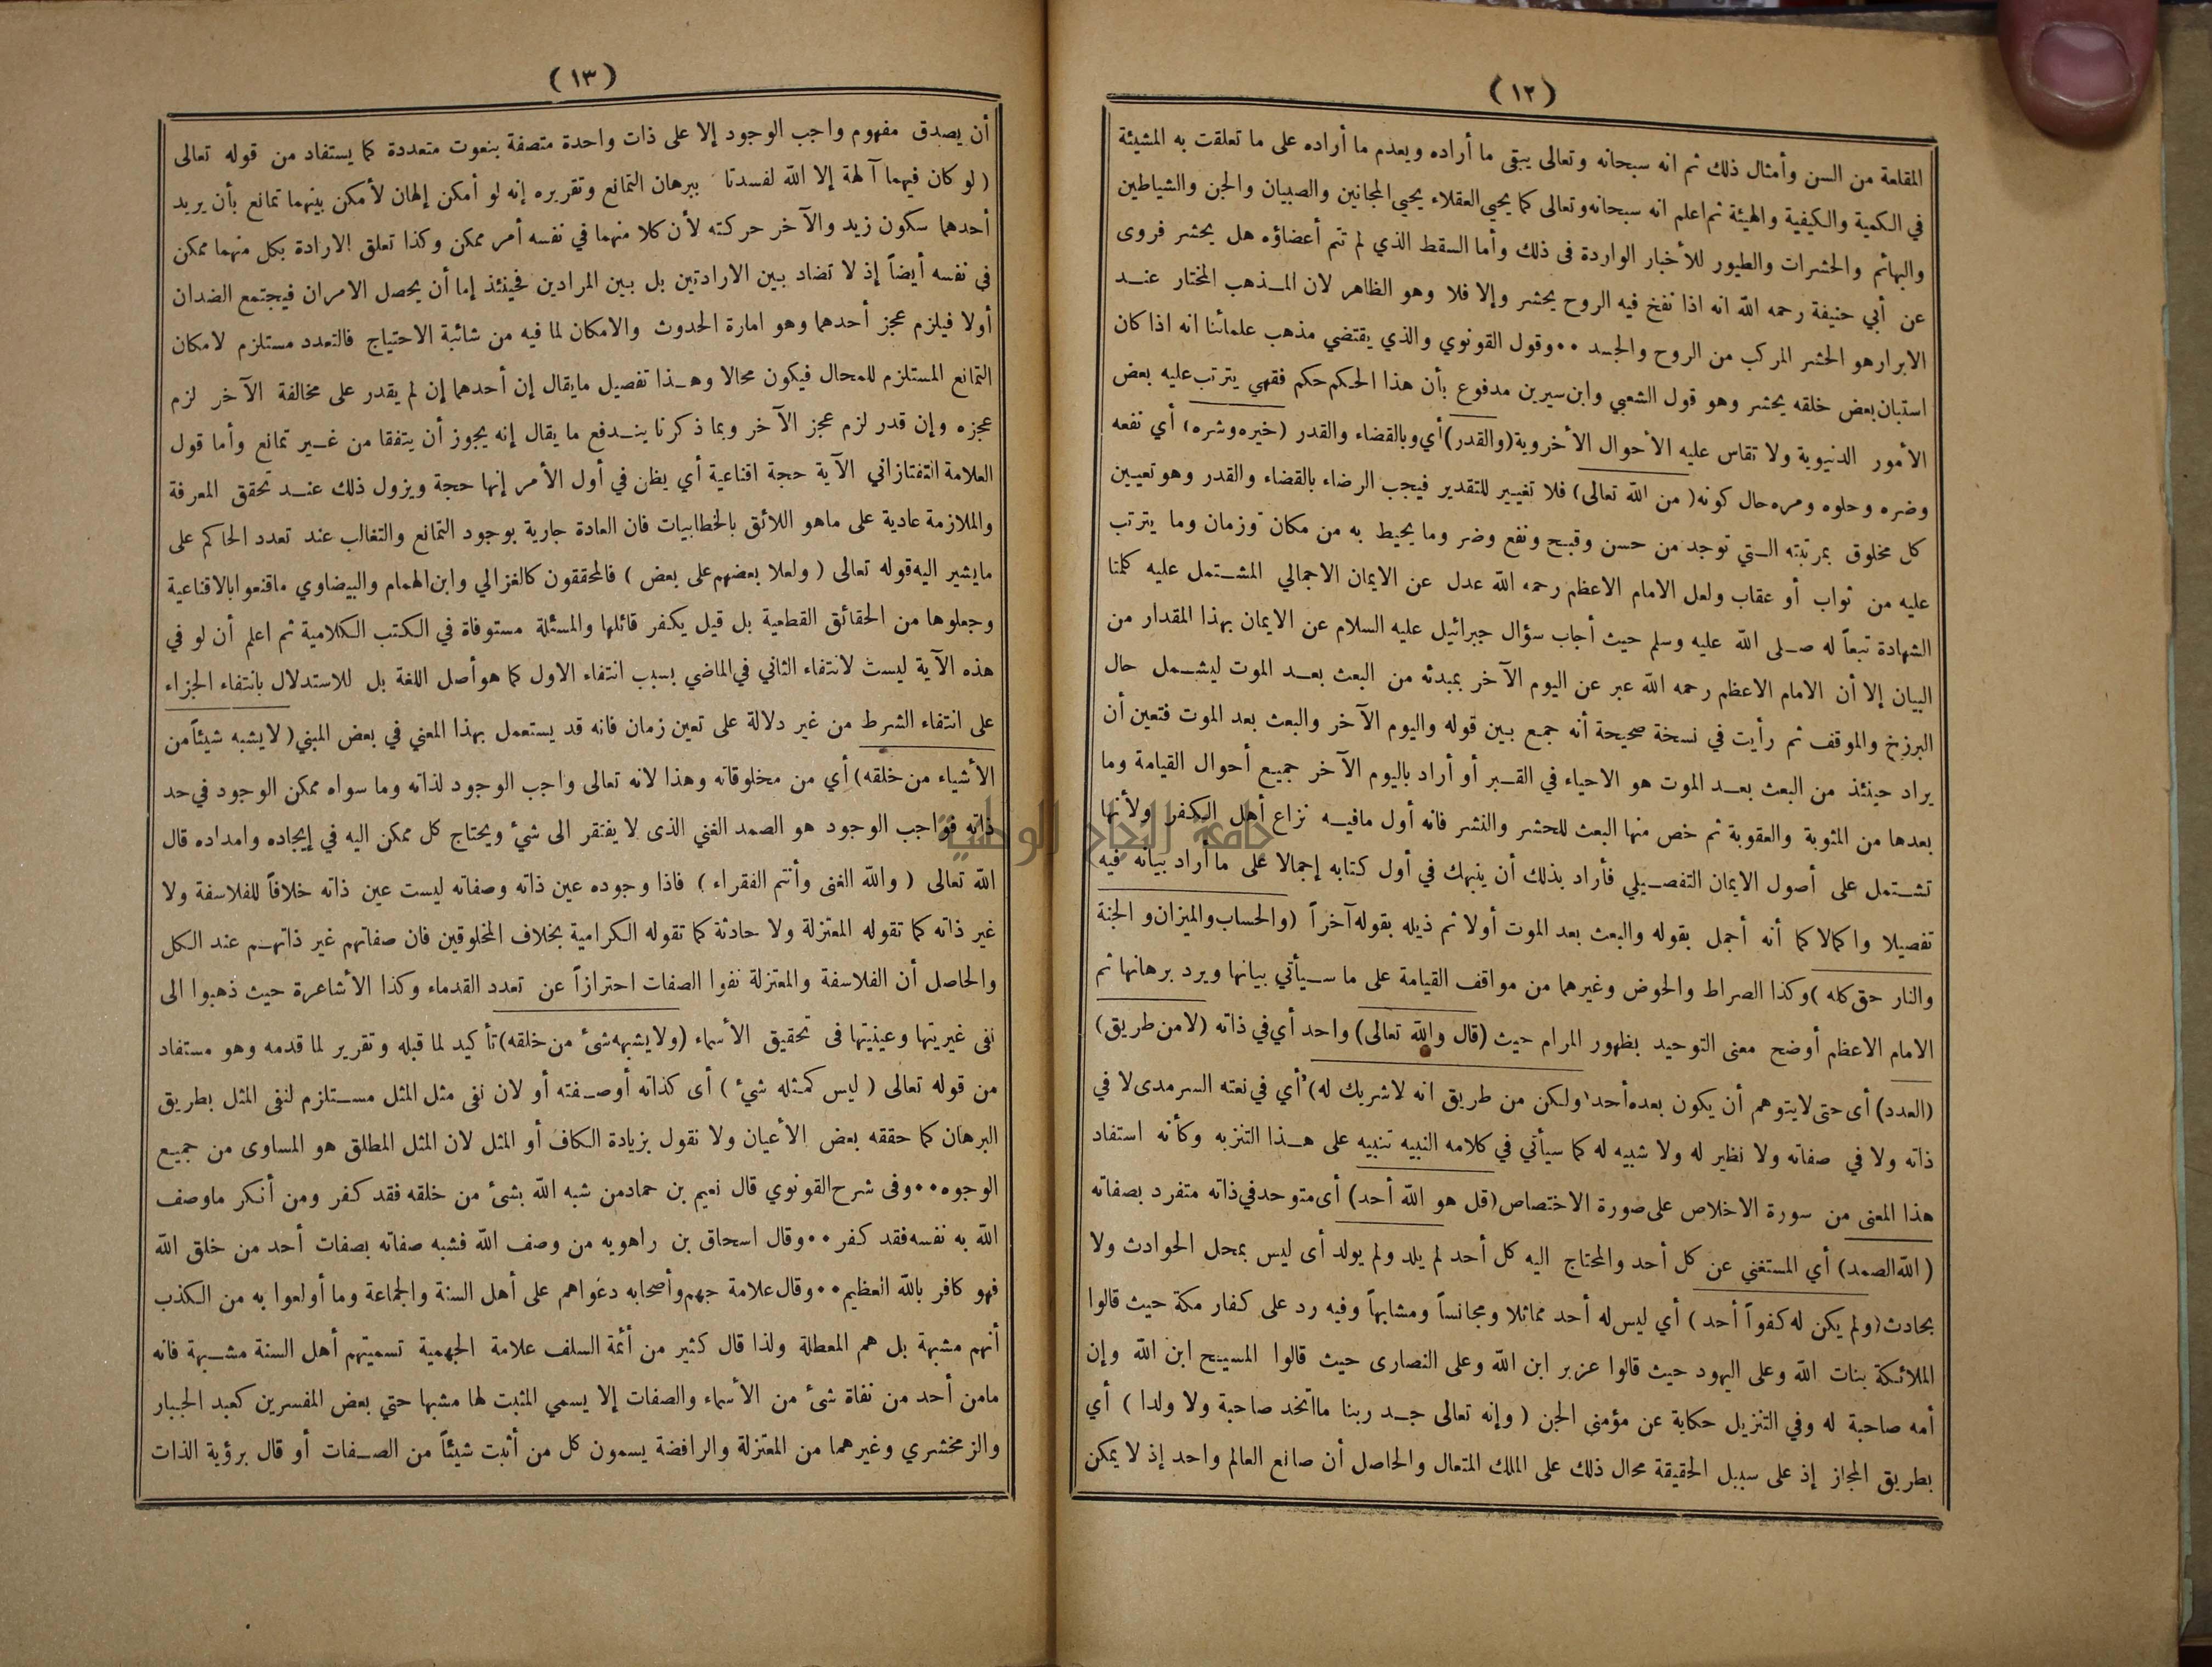 (١٢)
المقلعة من السن وأمثال ذلك ثم انه سبحانه وتعالى يبقى ما أراده ويعدم ما أراده على ما تعلقت به المشيئة
في الكمية والكيفية والهيئة ثم اعلم انه سبحانه وتعالى كما يحيي العقلاء يحيي المجانين والصبيان والجن والشياطين
والبهائم والحشرات والطيور للأخبار الواردة فى ذلك وأما السقط الذي لم تتم أعضاؤه هل يحشر فروى
عن أبي حنيفة رحمه الله انه اذا نفخ فيه الروح يحشر وإلا فلا وهو الظاهر لان المذهب المختار عند
الابرار هو الحشر المركب من الروح والجسد ٠٠ وقول القونوي والذي يقتضي مذهب علمائنا انه اذا كان
استبان بعض خلقه يحشر وهو قول الشعبي وابن سيرين مدفوع بأن هذا الحكم حكم فقهي يترتب عليه بعض
الأمور الدنيوية ولا تقاس عليه الأحوال الأخروية (والقدر) أي وبالقضاء والقدر (خيره وشره) أي نفعه
وضره وحلوه ومره حال كونه (من الله تعالى) فلا تغيير للتقدير فيجب الرضاء بالقضاء والقدر وهو تعيين
كل مخلوق بمرتبته التي توجد من حسن وقبح ونفع وضر وما يحيط به من مكان وزمان وما يترتب
عليه من ثواب أو عقاب ولعل الامام الاعظم رحمه الله عدل عن الايمان الاجمالي المشتمل عليه كلمتا
الشهادة تبعاً له صلى الله عليه وسلم حيث أجاب سؤال جبرائيل عليه السلام عن الايمان بهذا المقدار من
البيان إلا أن الامام الاعظم رحمه الله عبر عن اليوم الآخر بمبدئه من البعث بعد الموت ليشمل حال
البرزخ والموقف ثم رأيت في نسخة صحيحة أنه جمع بين قوله واليوم الآخر والبعث بعد الموت فتعين أن
يراد حينئذ من البعث بعد الموت هو الاحياء في القبر أو أراد باليوم الآخر جميع أحوال القيامة وما
بعدها من المثوبة والعقوبة ثم خص منها البعث للحشر والنشر فانه أول مافيه نزاع أهل الكفر ولأنها
تشتمل على أصول الايمان التفصيلي فأراد بذلك أن ينبهك في أول كتابه إجمالا على ما أراد بيانه فيه
تفصيلا واكمالا كما أنه أجمل بقوله والبعث بعد الموت أولا ثم ذيله بقوله آخراً (والحساب والميزان والجنة
والنار حق كله) وكذا الصراط والحوض وغيرهما من مواقف القيامة على ما سيأتي بيانها ويرد برهانها ثم
الامام الاعظم أوضح معنى التوحيد بظهور المرام حيث (قال والله تعالى) واحد أي في ذاته (لا من طريق)
(العدد) أى حتى لا يتوهم أن يكون بعده أحد (ولكن من طريق انه لا شريك له) أي في نعته السرمدى لا في
ذاته ولا في صفاته ولا نظير له ولا شبيه له كما سيأتي في كلامه النبيه تنبيه على هذا التنزيه وكأنه استفاد
هذا المعنى من سورة الاخلاص على صورة الاختصاص (قل هو الله أحد) أى متوحد في ذاته متفرد بصفاته
(الله الصمد) أي المستغني عن كل أحد والمحتاج اليه كل أحد لم يلد ولم يولد أى ليس بمحل الحوادث ولا
بحادث (ولم يكن له كفواً أحد) أي ليس له أحد مماثلا ومجانساً ومشابهاً وفيه رد على كفار مكة حيث قالوا
الملائكة بنات الله وعلى اليهود حيث قالوا عزير ابن الله وعلى النصارى حيث قالوا المسيح ابن الله وإن
أمه صاحبة له وفي التنزيل حكاية عن مؤمنى الجن (وإنه تعالى جد ربنا مااتخذ صاحبة ولا ولدا) أي
بطريق المجاز إذ على سبيل الحقيقة محال ذلك على الملك المتعال والحاصل أن صانع العالم واحد إذ لا يمكن
(١٣)
أن يصدق مفهوم واجب الوجود إلا على ذات واحدة متصفة بنعوت متعددة كما يستفاد من قوله تعالى
(لو كان فيهما آلهة إلا الله لفسدتا ببرهان التمانع وتقريره إنه لو أمكن إلهان لأمكن بينهما تمانع بأن يريد
أحدهما سكون زيد والآخر حركته لأن كلا منهما في نفسه أمر ممكن وكذا تعلق الارادة بكل منهما ممكن
في نفسه أيضاً إذ لا تضاد بين الارادتين بل بين المرادين فحينئذ إما أن يحصل الامران فيجتمع الضدان
أولا فيلزم عجز أحدهما وهو امارة الحدوث والامكان لما فيه من شائبة الاحتياج فالتعدد مستلزم لامكان
التمانع المستلزم للمحال فيكون محالا وهذا تفصيل مايقال إن أحدهما إن لم يقدر على مخالفة الآخر لزم
عجزه وإن قدر لزم عجز الآخر وبما ذكرنا يندفع ما يقال إنه يجوز أن يتفقا من غير تمانع وأما قول
العلامة التفتازاني الآية حجة اقناعية أي يظن في أول الأمر إنها حجة ويزول ذلك عند تحقق المعرفة
والملازمة عادية على ماهو اللائق بالخطابيات فان العادة جارية بوجود التمانع والتغالب عند تعدد الحاكم على
مايشير اليه قوله تعالى (ولعلا بعضهم على بعض) فالمحققون كالغزالي وابن الهمام والبيضاوي ماقنعوا بالاقناعية
وجعلوها من الحقائق القطعية بل قيل يكفر قائلها والمسئلة مستوفاة في الكتب الكلامية ثم اعلم أن لو في
هذه الآية ليست لانتفاء الثاني في الماضي بسبب انتفاء الاول كما هو أصل اللغة بل للاستدلال بانتفاء الجزاء
على انتفاء الشرط من غير دلالة على تعين زمان فانه قد يستعمل بهذا المعني في بعض المبني (لا يشبه شيئاً من
الأشياء من خلقه) أي من مخلوقاته وهذا لانه تعالى واجب الوجود لذاته وما سواه ممكن الوجود في حد
ذاته فواجب الوجود هو الصمد الغني الذى لا يفتقر الى شئ ويحتاج كل ممكن اليه في إيجاده وامداده قال
الله تعالى (والله الغنى وأنتم الفقراء) فاذا وجوده عين ذاته وصفاته ليست عين ذاته خلافاً للفلاسفة ولا
غير ذاته كما تقوله المعتزلة ولا حادثة كما تقوله الكرامية بخلاف المخلوقين فان صفاتهم غير ذاتهم عند الكل
والحاصل أن الفلاسفة والمعتزلة نفوا الصفات احترازاً عن تعدد القدماء وكذا الأشاعرة حيث ذهبوا الى
نفى غيريتها وعينيتها فى تحقيق الأسماء (ولا يشبهه شئ من خلقه) تأكيد لما قبله وتقرير لما قدمه وهو مستفاد
من قوله تعالى (ليس كمثله شئ) أى كذاته أوصفته أو لان نفى مثل المثل مستلزم لنفى المثل بطريق
البرهان كما حققه بعض الأعيان ولا نقول بزيادة الكاف أو المثل لان المثل المطلق هو المساوى من جميع
الوجوه ٠٠ وفى شرح القونوي قال نعيم بن حماد من شبه الله بشئ من خلقه فقد كفر ومن أنكر ماوصف
الله به نفسه فقد كفر ٠٠ وقال اسحاق بن راهويه من وصف الله فشبه صفاته بصفات أحد من خلق الله
فهو كافر بالله العظيم ٠٠ وقال علامة جهم وأصحابه دعواهم على أهل السنة والجماعة وما أولعوا به من الكذب
أنهم مشبهة بل هم المعطلة ولذا قال كثير من أئمة السلف علامة الجهمية تسميتهم أهل السنة مشبهة فانه
مامن أحد من نفاة شئ من الأسماء والصفات إلا يسمي المثبت لها مشبها حتي بعض المفسرين كعبد الجبار
والزمخشري وغيرهما من المعتزلة والرافضة يسمون كل من أثبت شيئاً من الصفات أو قال برؤية الذات
جامعة النجاح الوطنية